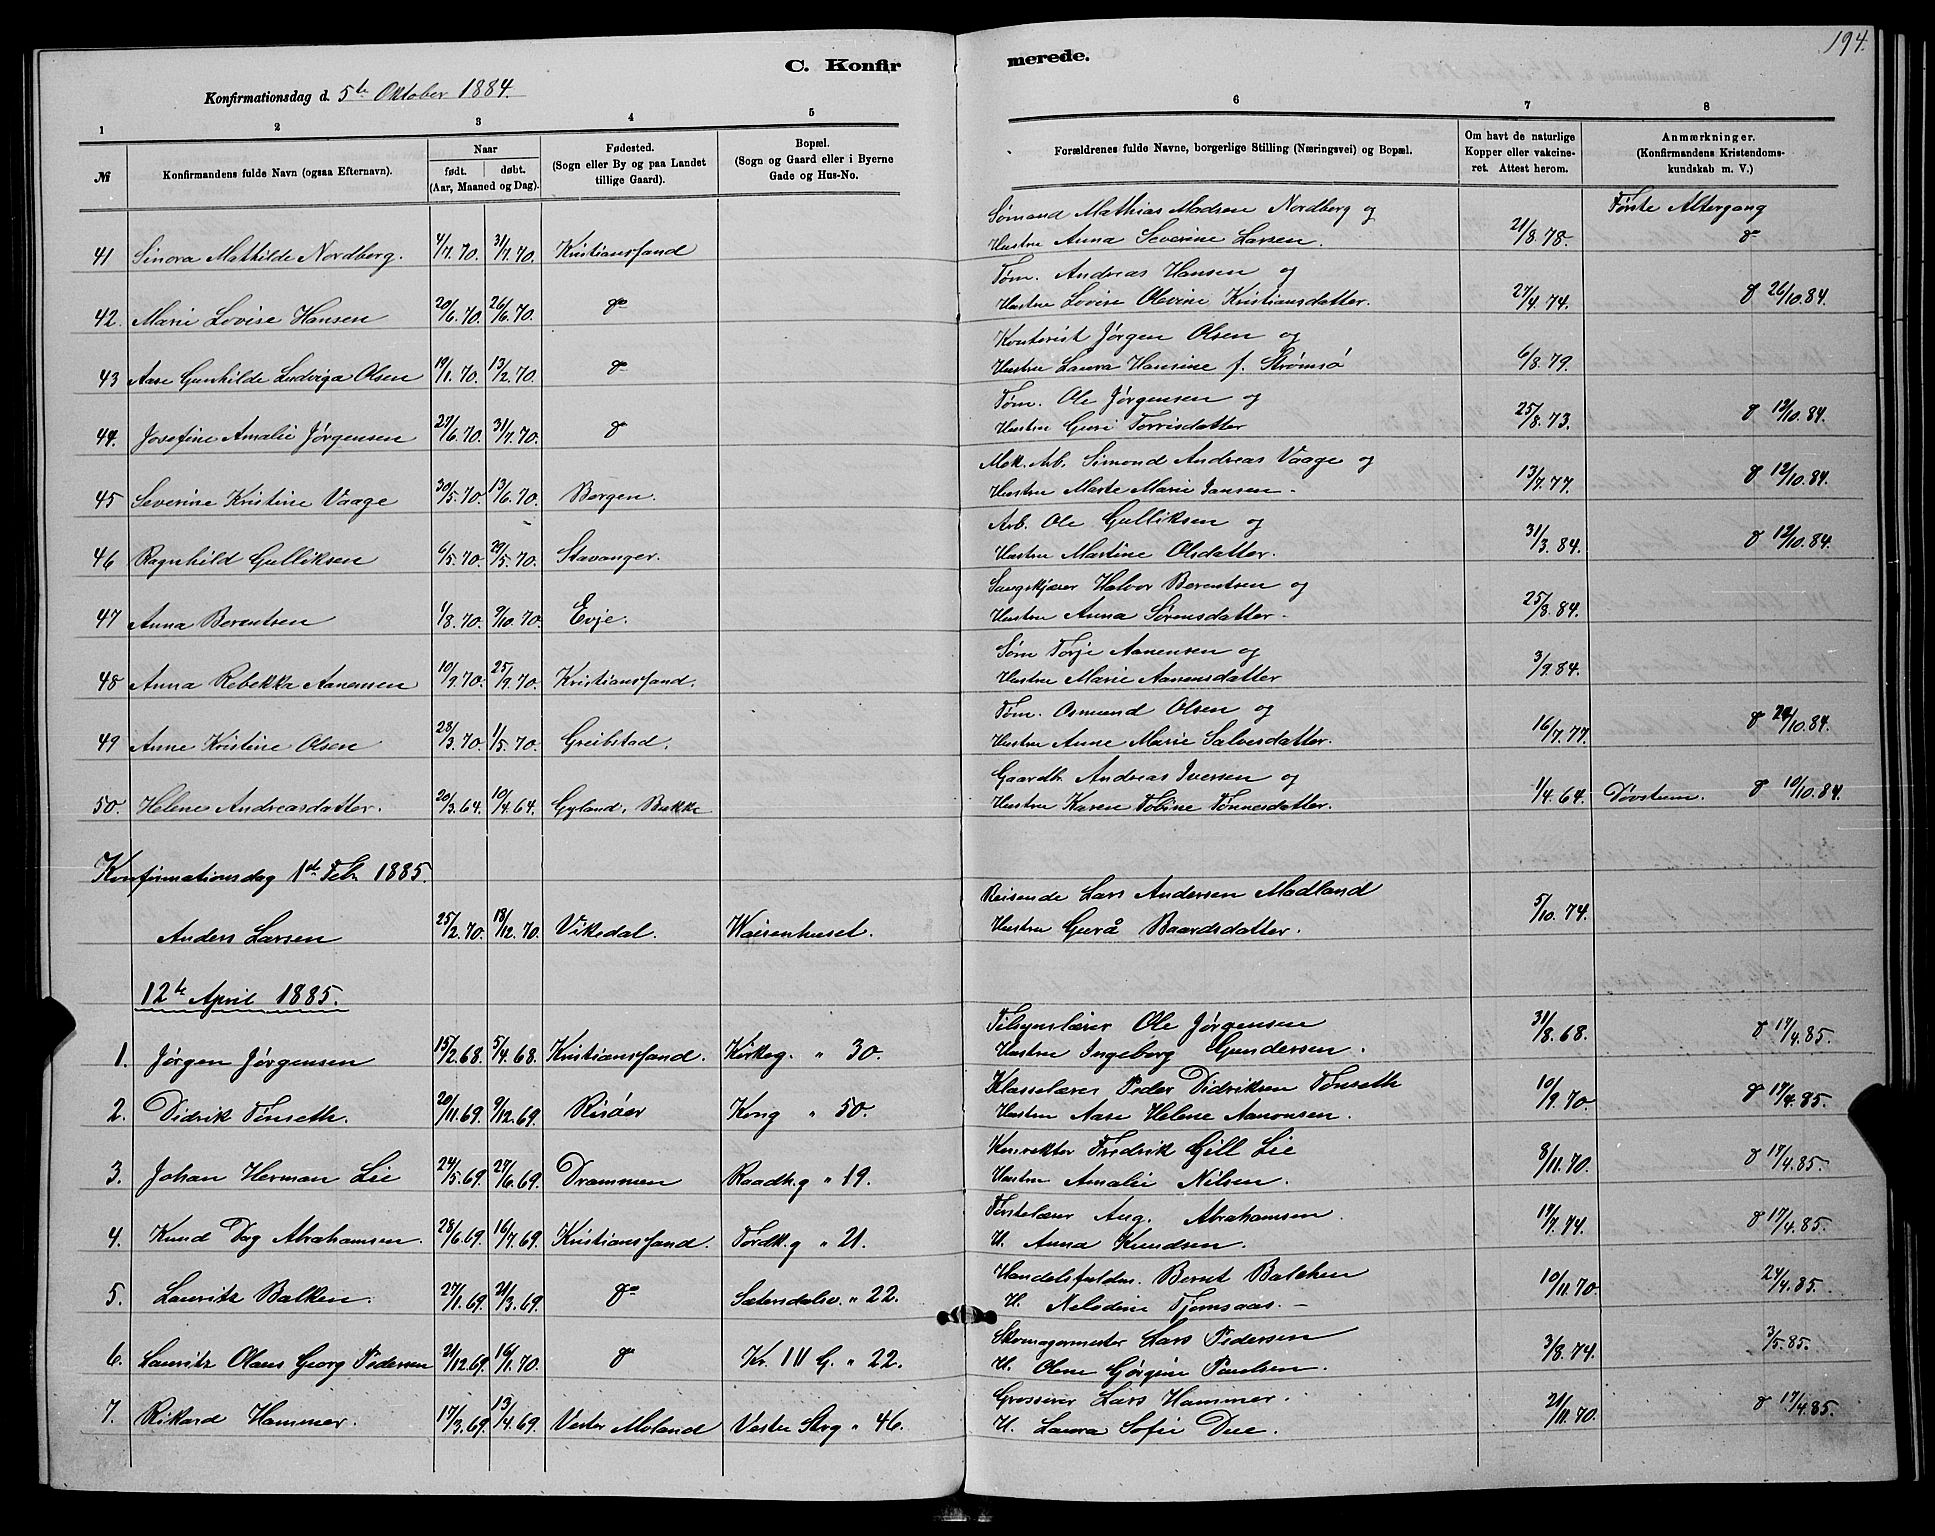 194.
C. Konfirmerede.
Konfirmationsdag d. 5te Oktober 1884.
1 2 3 4 5 6 7 8
№
Konfirmandens fulde Navn (ogsaa Efternavn).
Naar
født. døbt.
(Aar, Maaned og Dag).
Fødested.
(Sogn eller By og paa Landet
tillige Gaard).
Bopæl.
(Sogn og Gaard eller i Byerne
Gade og Hus-No.
Forældrenes fulde Navne, borgerlige Stilling (Næringsvei) og Bopæl.
Om havt de naturlige
Kopper eller vakcine-
ret. Attest herom.
Anmærkninger.
(Konfirmandens Kristendoms-
kundskab m. V.)
Sømand Mathias Madsen Nordberg og Første Altergang
41 Sinora Mathilde Nordberg. 4/7.70. 31/7.70. Kristianssand Hustru Anna Severine Larsen. 21/8.78.
Tøm. Andreas Hansen og
42. Marie Lovise Hansen 20/6.70. 26/6.70. do Hustru Lovise Olevine Kristiansdatter. 27/4.74. 26/10.84.
Kontorist Jørgen Olsen og
43 Aase Gunhilde Ludviga Olsen 19/1.70. 13/2.70. do Hustru Laura Hansine f. Strømsø 6/8.79.
Tøm. Ole Jørgensen og
44. Josefine Amalie Jørgensen 27/6.70. 31/7.70. do Hustru Guri Torrisdatter 25/8.73. 12/10.84.
Mek. Arb. Simond Andreas Vaage og
45 Severine Kristine Vaage 30/5.70. 13/6.70. Bergen. Hustru Marte Marie Jansen. 13/7.77. 12/10.84.
Arb. Ole Gulliksen og
46 Ragnhild Gulliksen 6/5.70. 29/5.70. Stavanger. Hustru Martine Olsdatter. 31/3.84. 12/10.84.
Sangskjærer Halvor Berentsen og
47 Anna Berentsen 1/8.70. 9/10.70. Evje. Hustru Anna Sørensdatter. 25/8.84.
Søm Torje Aanensen og
48 Anna Rebekka Aanensen 10/9.70. 25/9.70. Kristianssand. Hustru Marie Aanensdatter 3/9.84.
Tøm. Osmund Olsen og
49 Anne Kristine Olsen 28/3.70. 1/5.70. Greibstad. Hustru Anne Marie Salvesdatter. 16/7.77. 24/10.84.
Gaardb. Andreas Iversen og
50. Helene Andreasdatter. 20/3.64. 10/4.64. Gyland, Bakke Hustru Karen Tobine Tønnesdatter. 1/4.64. Døvstum. 10/10.84.
Konfirmationsdag 1ste Febr 1885.
Reisende Lars Andersen Madland
Anders Larsen 25/2.70. 18/12.70. Vikedal. Waisenhuset. Hustru Gurå Baardsdatter. 5/10.74.
12te April 1885.
Tilsynslærer Ole Jørgensen
1. Jørgen Jørgensen 15/2.68. 5/4.68. Kristianssand. Kirkeg. " 30. Hustru Ingeborg Gundersen. 31/8.68. 17/4.85.
Klasselærer Peder Didriksen Tønseth
2. Didrik Tønseth. 20/11.69. 9/12.69. Risøer Kong " 50. Hustru Aase Helene Aanonsen. 10/9.70. 17/4.85.
Konrektor Fredrik Gill Lie
3. Johan Herman Lie 24/5.69. 27/6.69. Drammen Raadh.g " 19. Hustru Amalie Nilsen. 8/11.70. 17/4.85.
Førstelærer Aug. Abrahamsen.
4. Knud Dag Abrahamsen. 28/6.69. 16/7.69. Kristianssand. Tordk.g " 21. H. Anna Knudsen. 17/7.74. 17/4.85.
Handelsfuldm. Bernt Balchen
5. Lauritz Balken. 27/1.69. 21/3.69. do Sætersdalsv. " 22. H. Nelodine Tjomsaas. 10/11.70. 24/4.85.
Skomagermester Lars Pedersen
6. Lauritz Olaus Georg Pedersen 21/12.69. 16/1.70. do Kr. IV G. " 22. H. Olene Gjørgine Paulsen. 3/8.74. 3/5.85.
Grosserer Lars Hammer.
7. Rikard Hammer. 17/3.69. 13/4.69. Vester Moland Vestre Strg " 46. H. Laura Sofie Due. 21/11.70. 17/4.85.